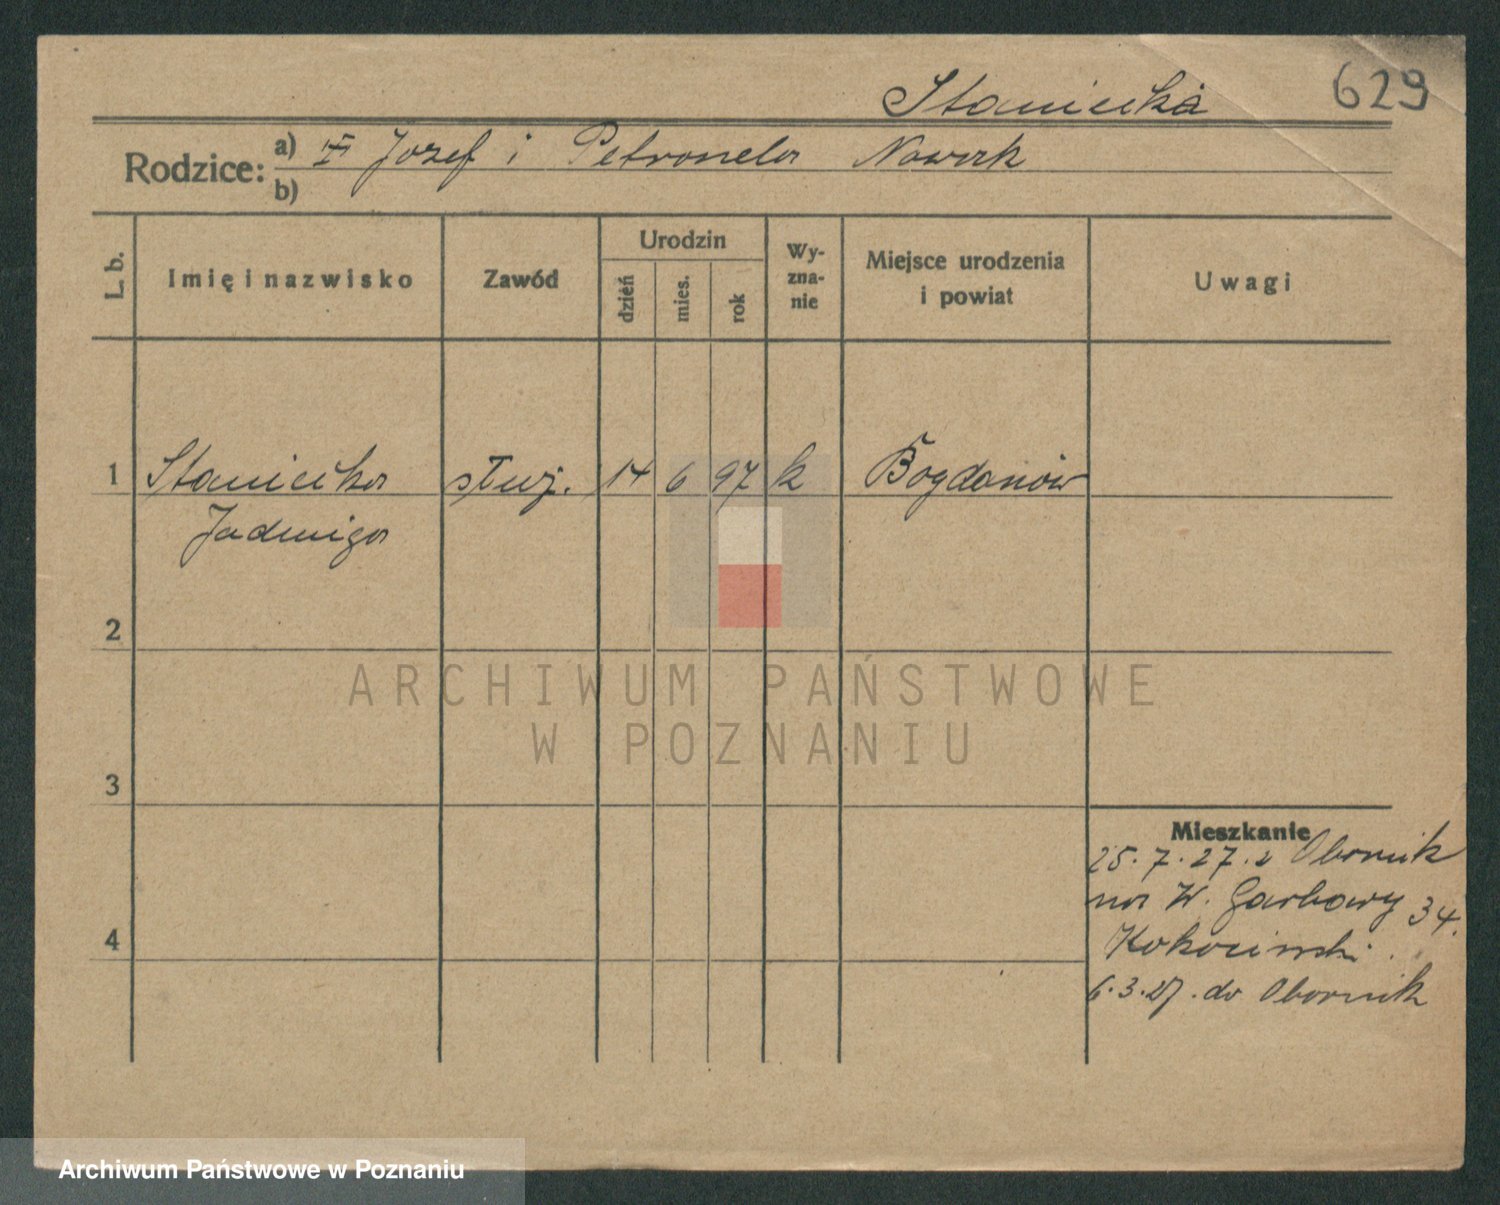 629
Staniecka
Rodzice: a) Jozef i Petronela Nowak
b)
L. b.
Imię i nazwisko
Zawód
Urodzin
dzień
mies.
rok
Wy-
zna-
nie
Miejsce urodzenia
i powiat
Uwagi
1 Staniecka służ. 14 6 97 k Bogdanów
Jadwiga
2
3
4
Mieszkanie
25.7.27. z Obornik
na W. Garbary 34.
Kokocinski.
do Obornik
ARCHIWUM PAŃSTWOWE
W POZNANIU
Archiwum Państwowe w Poznaniu